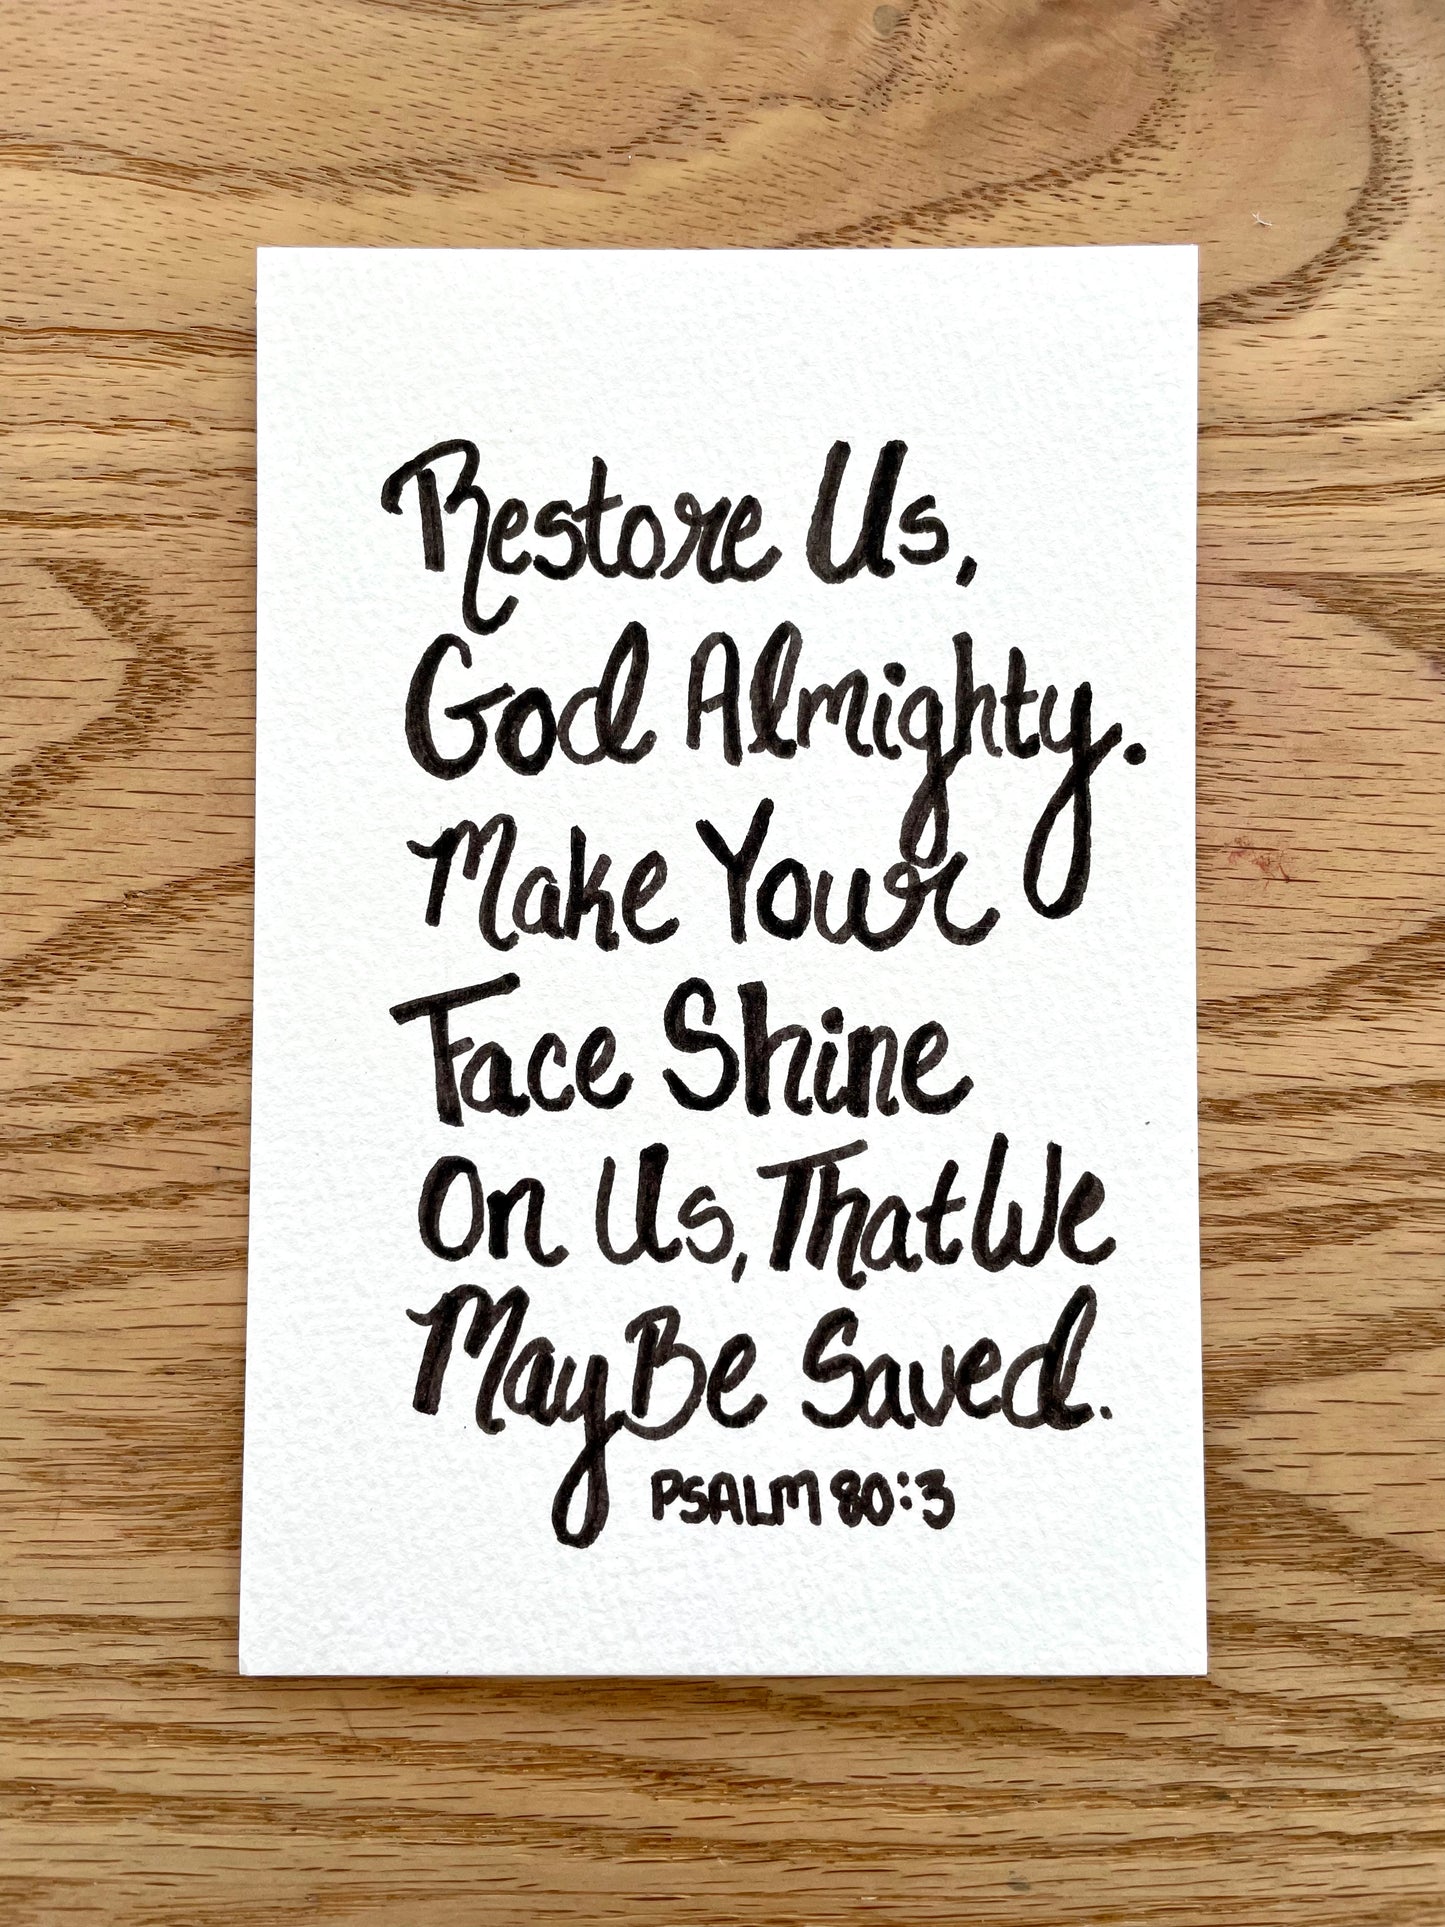 Restore Us,
God Almighty.
Make Your
Face Shine
On Us, That We
May Be Saved.
PSALM 80:3